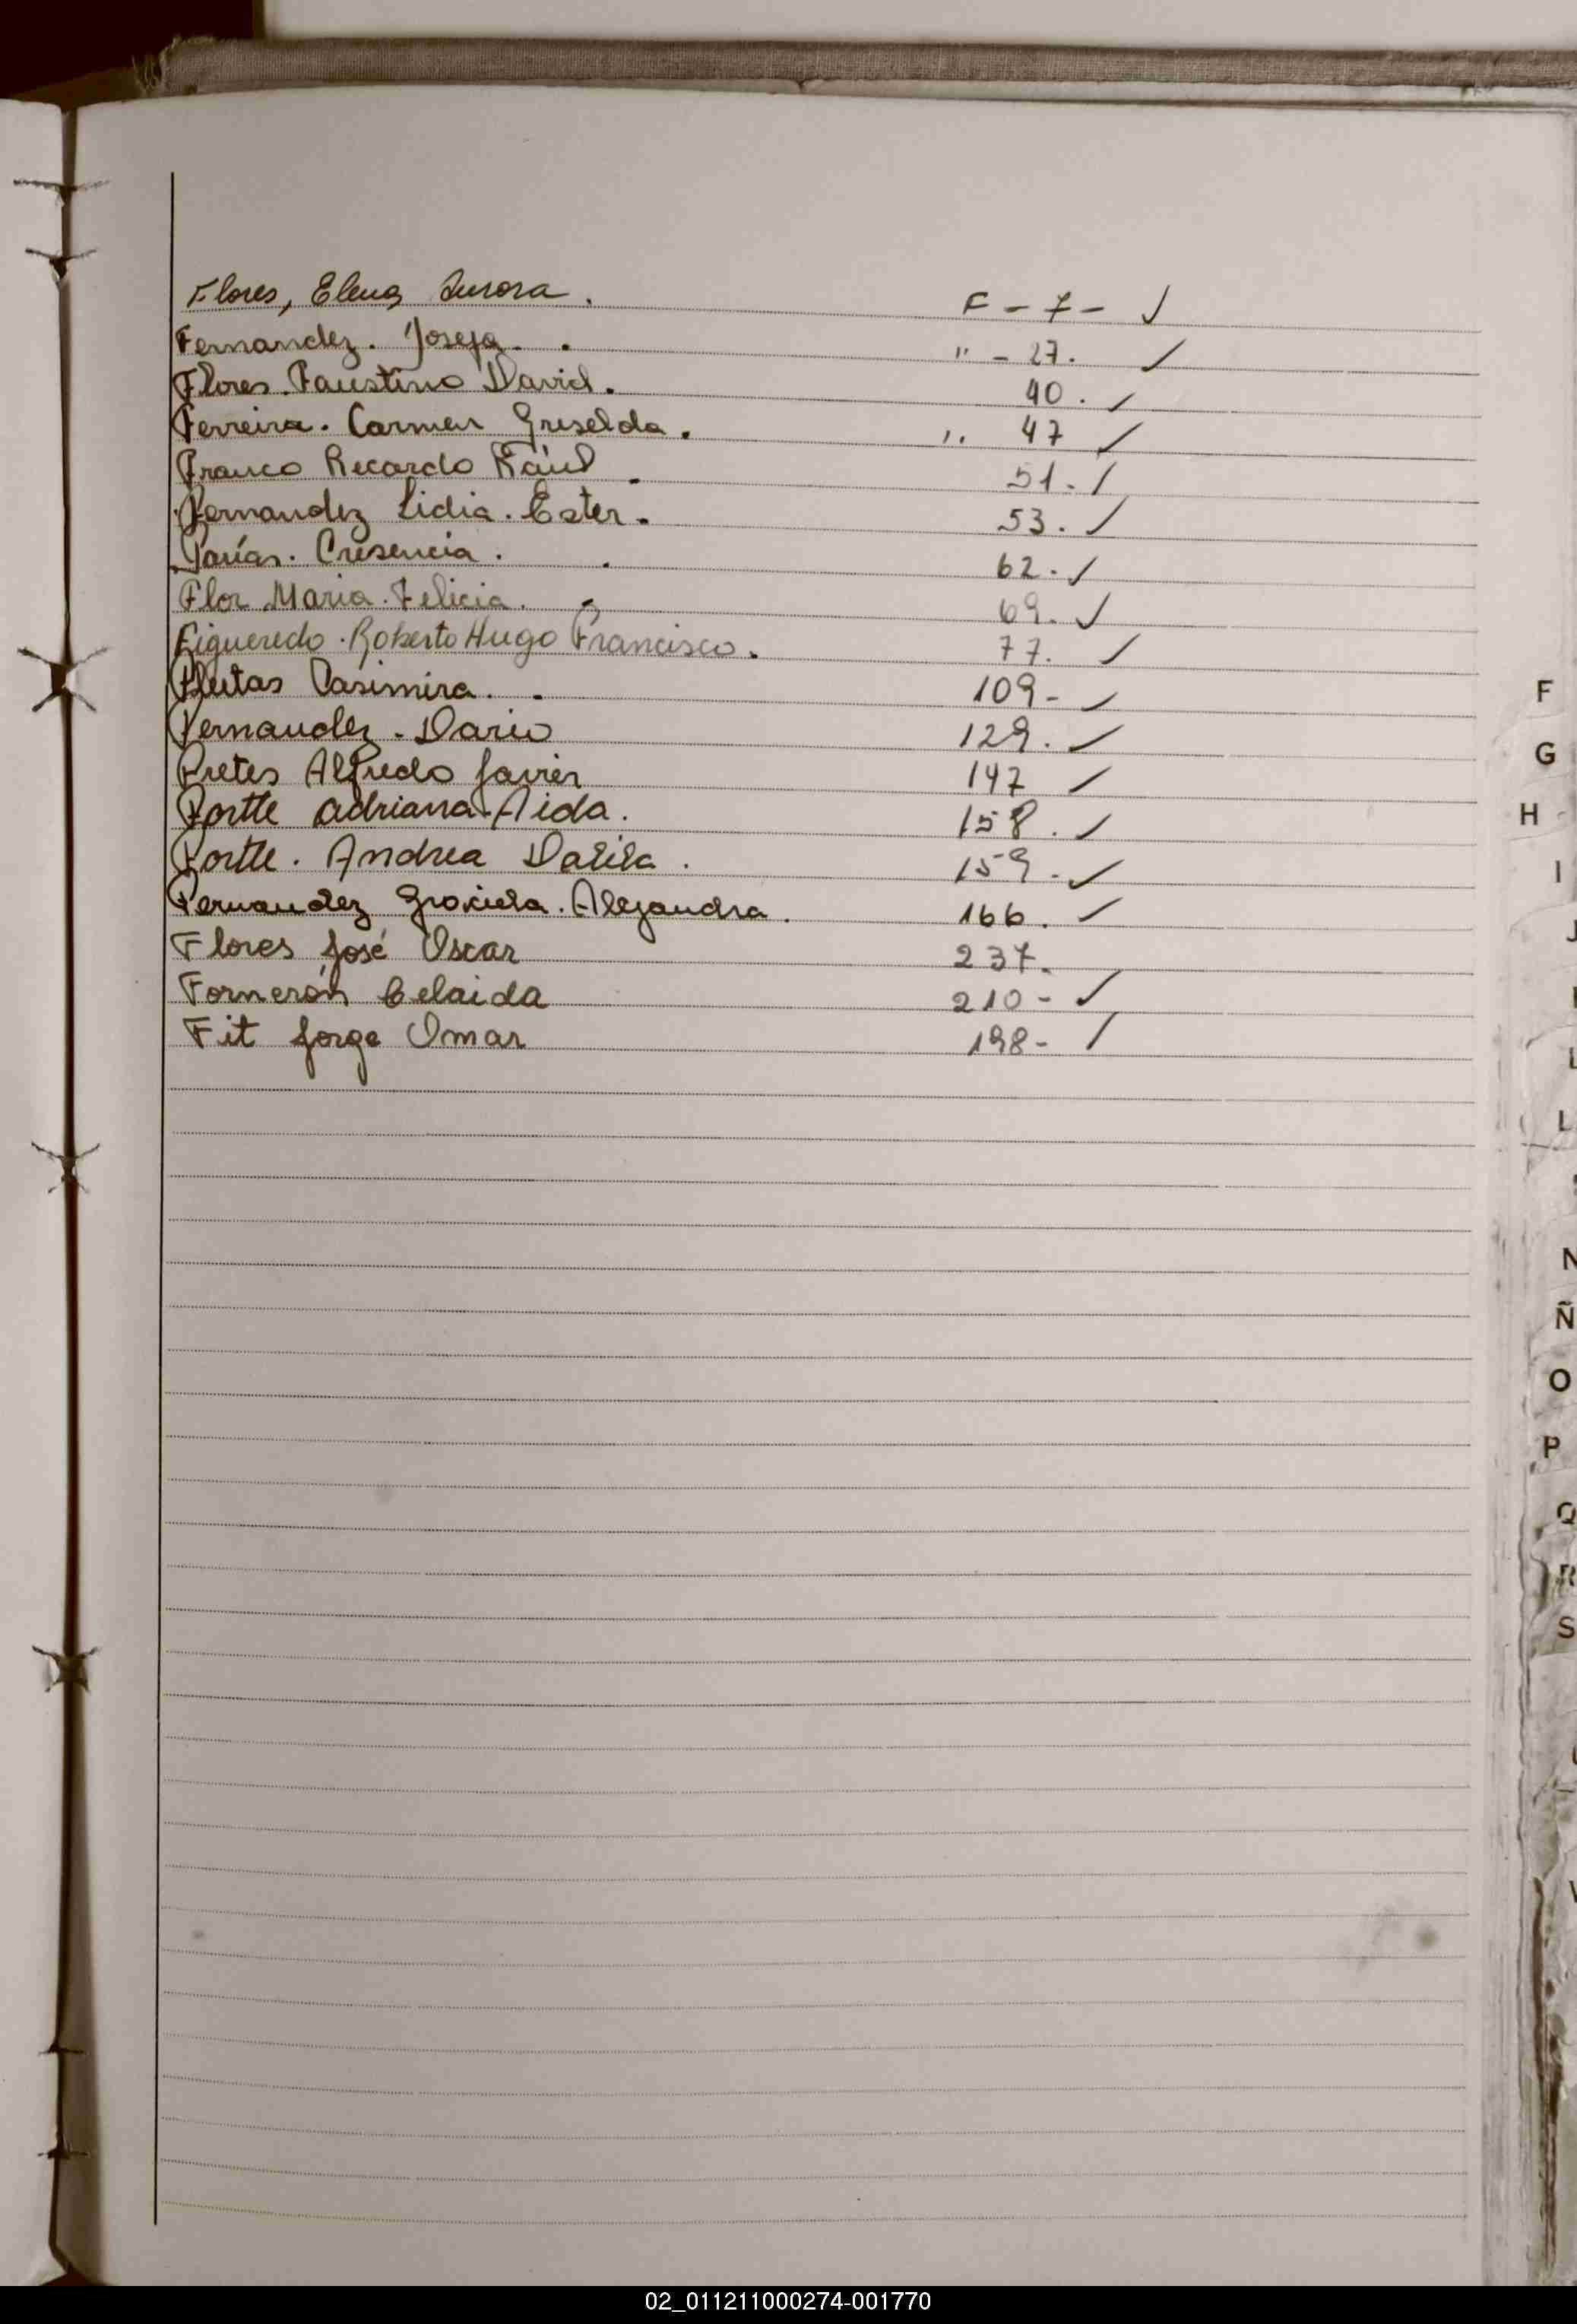 Flores, Elena Aurora. F - 7 - ✓
Fernandez. Josefa. . " - 27. ✓
Flores. Faustino David. 40. ✓
Ferreira. Carmen Griselda. " 47 ✓
Franco Ricardo Raúl . 51. ✓
Fernandez Lidia. Ester. 53. ✓
Farías. Cresencia. . 62. ✓
Flor Maria. Felicia. 69. ✓
Figueredo. Roberto Hugo Francisco. 77. ✓
Casimira. . 109- ✓
Fernandez. Dario 129. ✓
Fretes Alfredo Javier 147 ✓
Fortte Adriana Aida. 158. ✓
Fortte. Andrea Dalila. 159. ✓
Fernandez Graciela. Alejandra. 166. ✓
Flores José Oscar 237.
Fornerón Celaida 210- ✓
Fit Jorge Omar 198- ✓
F
G
H
I
J
L
L
N
Ñ
O
P
Q
R
S
02_011211000274-001770